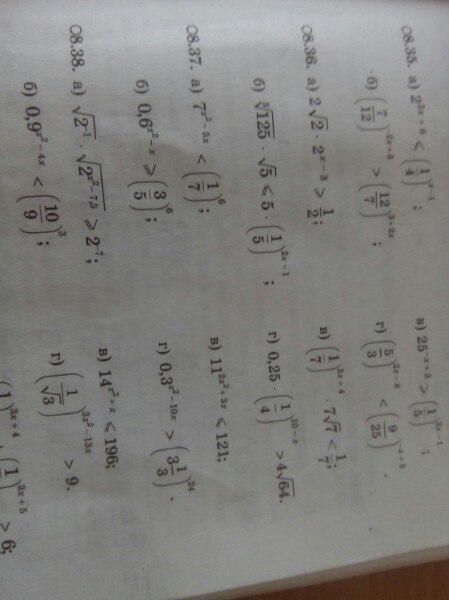 08.35. а) 2^{3x+6} ≤ (1/4)^{x-1};
в) 25^{-x+3} > (1/5)^{3x-1};
б) (7/12)^{-2x+3} > (12/7)^{3+2x};
г) (5/3)^{2x-8} < (9/25)^{-x+3}.
08.36. а) 2√2 · 2^{x-3} > 1/2;
в) (1/7)^{3x+4} · 7√7 < 1/7;
б) ∛125 · √5 ≤ 5 · (1/5)^{2x-1};
г) 0,25 · (1/4)^{10-x} > 4√64.
08.37. а) 7^{x²-5x} < (1/7)^6;
в) 11^{2x²+3x} ≤ 121;
б) 0,6^{x²-x} > (3/5)^6;
г) 0,3^{x²-10x} > (3 1/3)^{24}.
08.38. а) √(2^{-1}) · √(2^{x²-7,5}) ≥ 2^{-7};
в) 14^{x²+x} ≤ 196;
б) 0,9^{x²-4x} < (10/9)^3;
г) (1/√3)^{3x²-13x} > 9.
)^{3x+4}
(1/)^{3x+5} > 6;